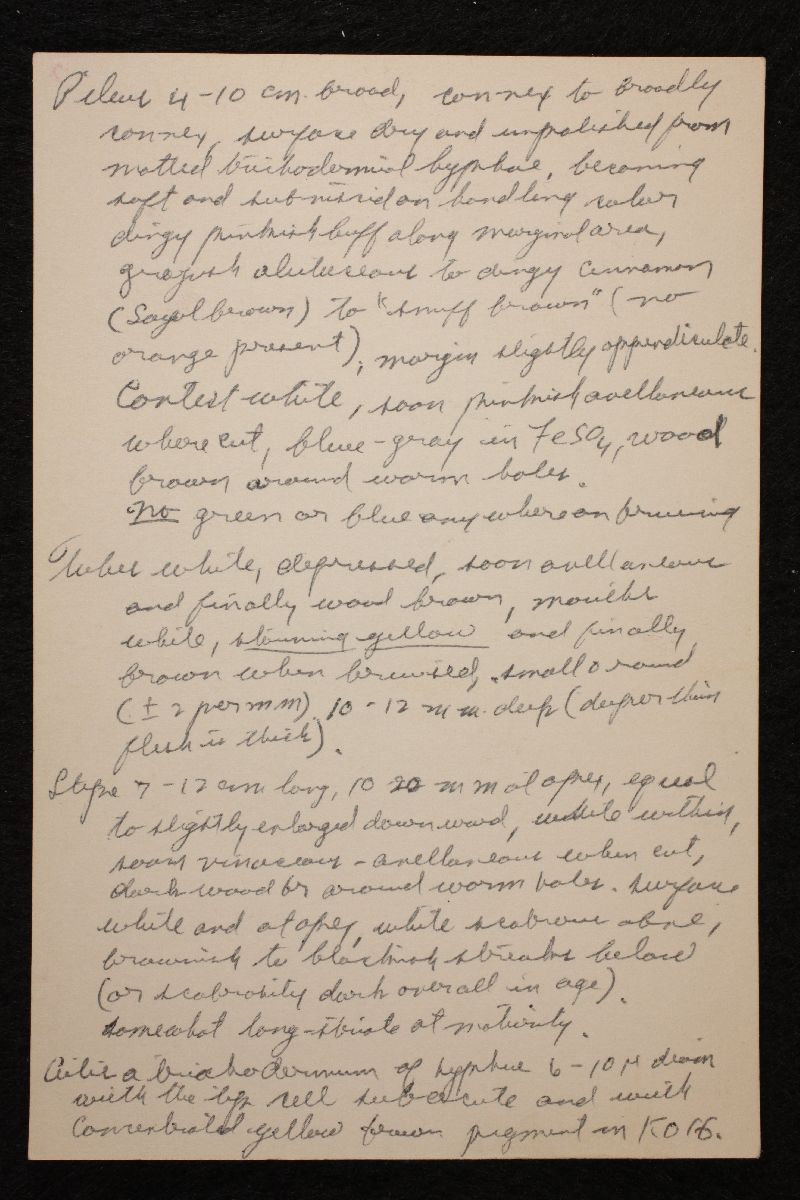 Pileus 4-10 cm. broad, convex to broadly
convex, surface dry and unpolished from
matted trichodermial hyphae, becoming
soft and subviscid on handling color
dingy pinkish buff along marginal area,
grayish alutaceous to dingy cinnamon
(Sayal brown) to "snuff brown" (no
orange present); margin slightly appendiculate.
Context white, soon pinkish avellaneous
where cut, blue-gray in FeSO4, wood
brown around worm holes.
No green or blue anywhere on bruising
Tubes white, depressed, soon avellaneous
and finally wood brown, mouths
white, staining yellow and finally
brown when bruised, small & round
(± 2 per mm) 10-12 mm. deep (deeper than
flesh is thick).
Stipe 7-12 cm long, 10 20 mm at apex, equal
to slightly enlarged downward, white within,
soon vinaceous-avellaneous when cut,
dark wood br around worm holes. surface
white and at apex, white scabrous above,
brownish to blackish streaks below
(or scabrosity dark overall in age).
somewhat long-striate at maturity.
Cutis a trichodermium of hyphae 6-10 µ diam
with the tip cell subacute and with
concentrated yellow brown pigment in KOH.